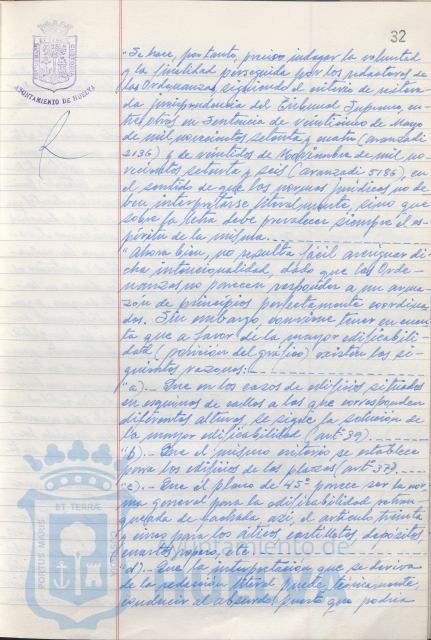 32
AYUNTAMIENTO DE HUELVA
"Se hace, por tanto, preciso indagar la voluntad
y la finalidad perseguida por los redactores de
las Ordenanzas, siguiendo el criterio de reitera-
da jurisprudencia del Tribunal Supremo, en-
tre otras en Sentencia de veinticinco de Mayo
de mil novecientos setenta y cuatro (aranzadi
2136) y de veintidos de Noviembre de mil no-
vecientos setenta y seis (aranzadi 5186), en
el sentido de que las normas jurídicas no de
ben interpretarse literalmente sino que
sobre la letra debe prevalecer siempre el es-
píritu de la misma.
"Ahora bien, no resulta fácil averiguar di
cha intencionalidad, dado que las Orde-
nanzas no parecen responder a un arma-
zón de principios perfectamente coordina-
dos. Sin embargo, conviene tener en cuen
ta que a favor de la mayor edificabili-
dad (posición del gráfico) existen las si-
guientes razones:
"a).- Que en los casos de edificios situados
en esquinas de calles a las que corresponden
diferentes alturas se sigue la solución de
la mayor edificabilidad (artº 39).
"b).- Que el mismo criterio se establece
para los edificios de las plazas (artº 37).
"c).- Que el plano de 45º parece ser la nor
ma general para la edificabilidad retran
queada de fachada, así, el artículo treinta
y uno para los áticos, castilletes, depósitos
cuartos ropero, etc.
"d).- Que la interpretación que se deriva
de la redacción literal puede teóricamente
conducir al absurdo puesto que podría
PORTUS MARIS ET TERRAE
Ayuntamiento de
HUELVA